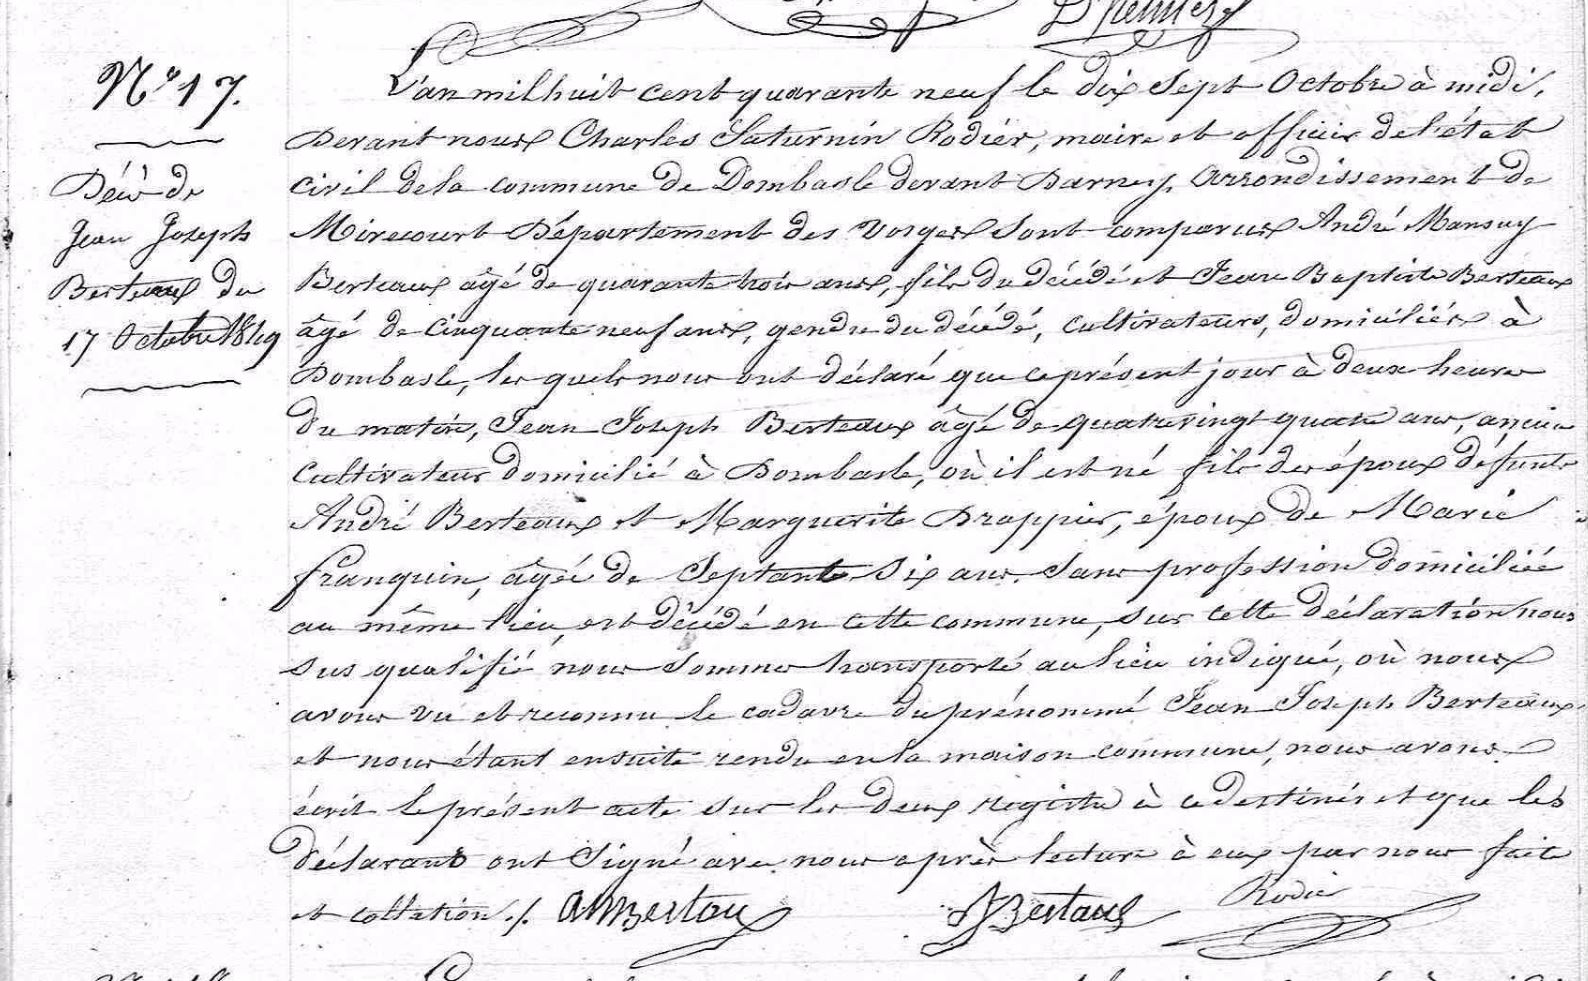 N° 17.
Décès de
Jean Joseph
Berteaux du
17 Octobre 1849
L'an mil huit cent quarante neuf le dix Sept Octobre à midi,
Devant nous Charles Saturnin Rodier, maire et officier de l'état
civil de la commune de Dombasle devant Darney, arrondissement de
Mirecourt Département des Vosges Sont comparus André Mansuy
Berteaux âgé de quarante trois ans, fils du décédé et Jean Baptiste Berteaux
âgé de Cinquante neuf ans, gendre du décédé, cultivateurs, domiciliés à
Dombasle, les quels nous ont déclaré que ce présent jour à deux heures
du matin, Jean Joseph Berteaux âgé de quatre vingt quatre ans, ancien
Cultivateur domicilié à Dombasle, où il est né fils des époux défunts
André Berteaux et Marguerite Drappier, époux de Marie
franquin, âgée de Septante Six ans. Sans profession domiciliée
au même lieu, est décédé en cette commune, sur cette déclaration nous
Sus qualifié nous Sommes transporté au lieu indiqué, où nous
avons vu et reconnu le cadavre du prénommé Jean Joseph Berteaux,
et nous étant ensuite rendu en la maison commune, nous avons
écrit le présent acte sur les deux registres à ce destinés et que les
déclarants ont Signé avec nous après lecture à eux par nous faite
et collation ./. AMBertau JBBertaux Rodier